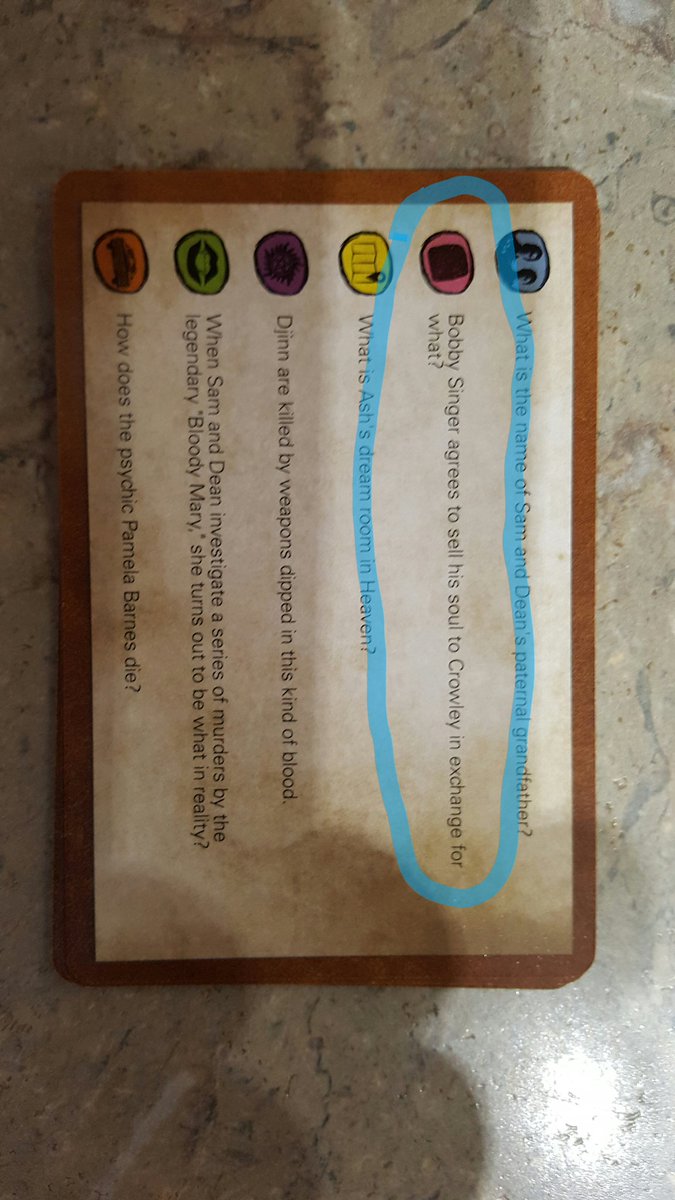 What is the name of Sam and Dean's paternal grandfather?
Bobby Singer agrees to sell his soul to Crowley in exchange for
what?
What is Ash's dream room in Heaven?
Djinn are killed by weapons dipped in this kind of blood.
When Sam and Dean investigate a series of murders by the
legendary "Bloody Mary," she turns out to be what in reality?
How does the psychic Pamela Barnes die?